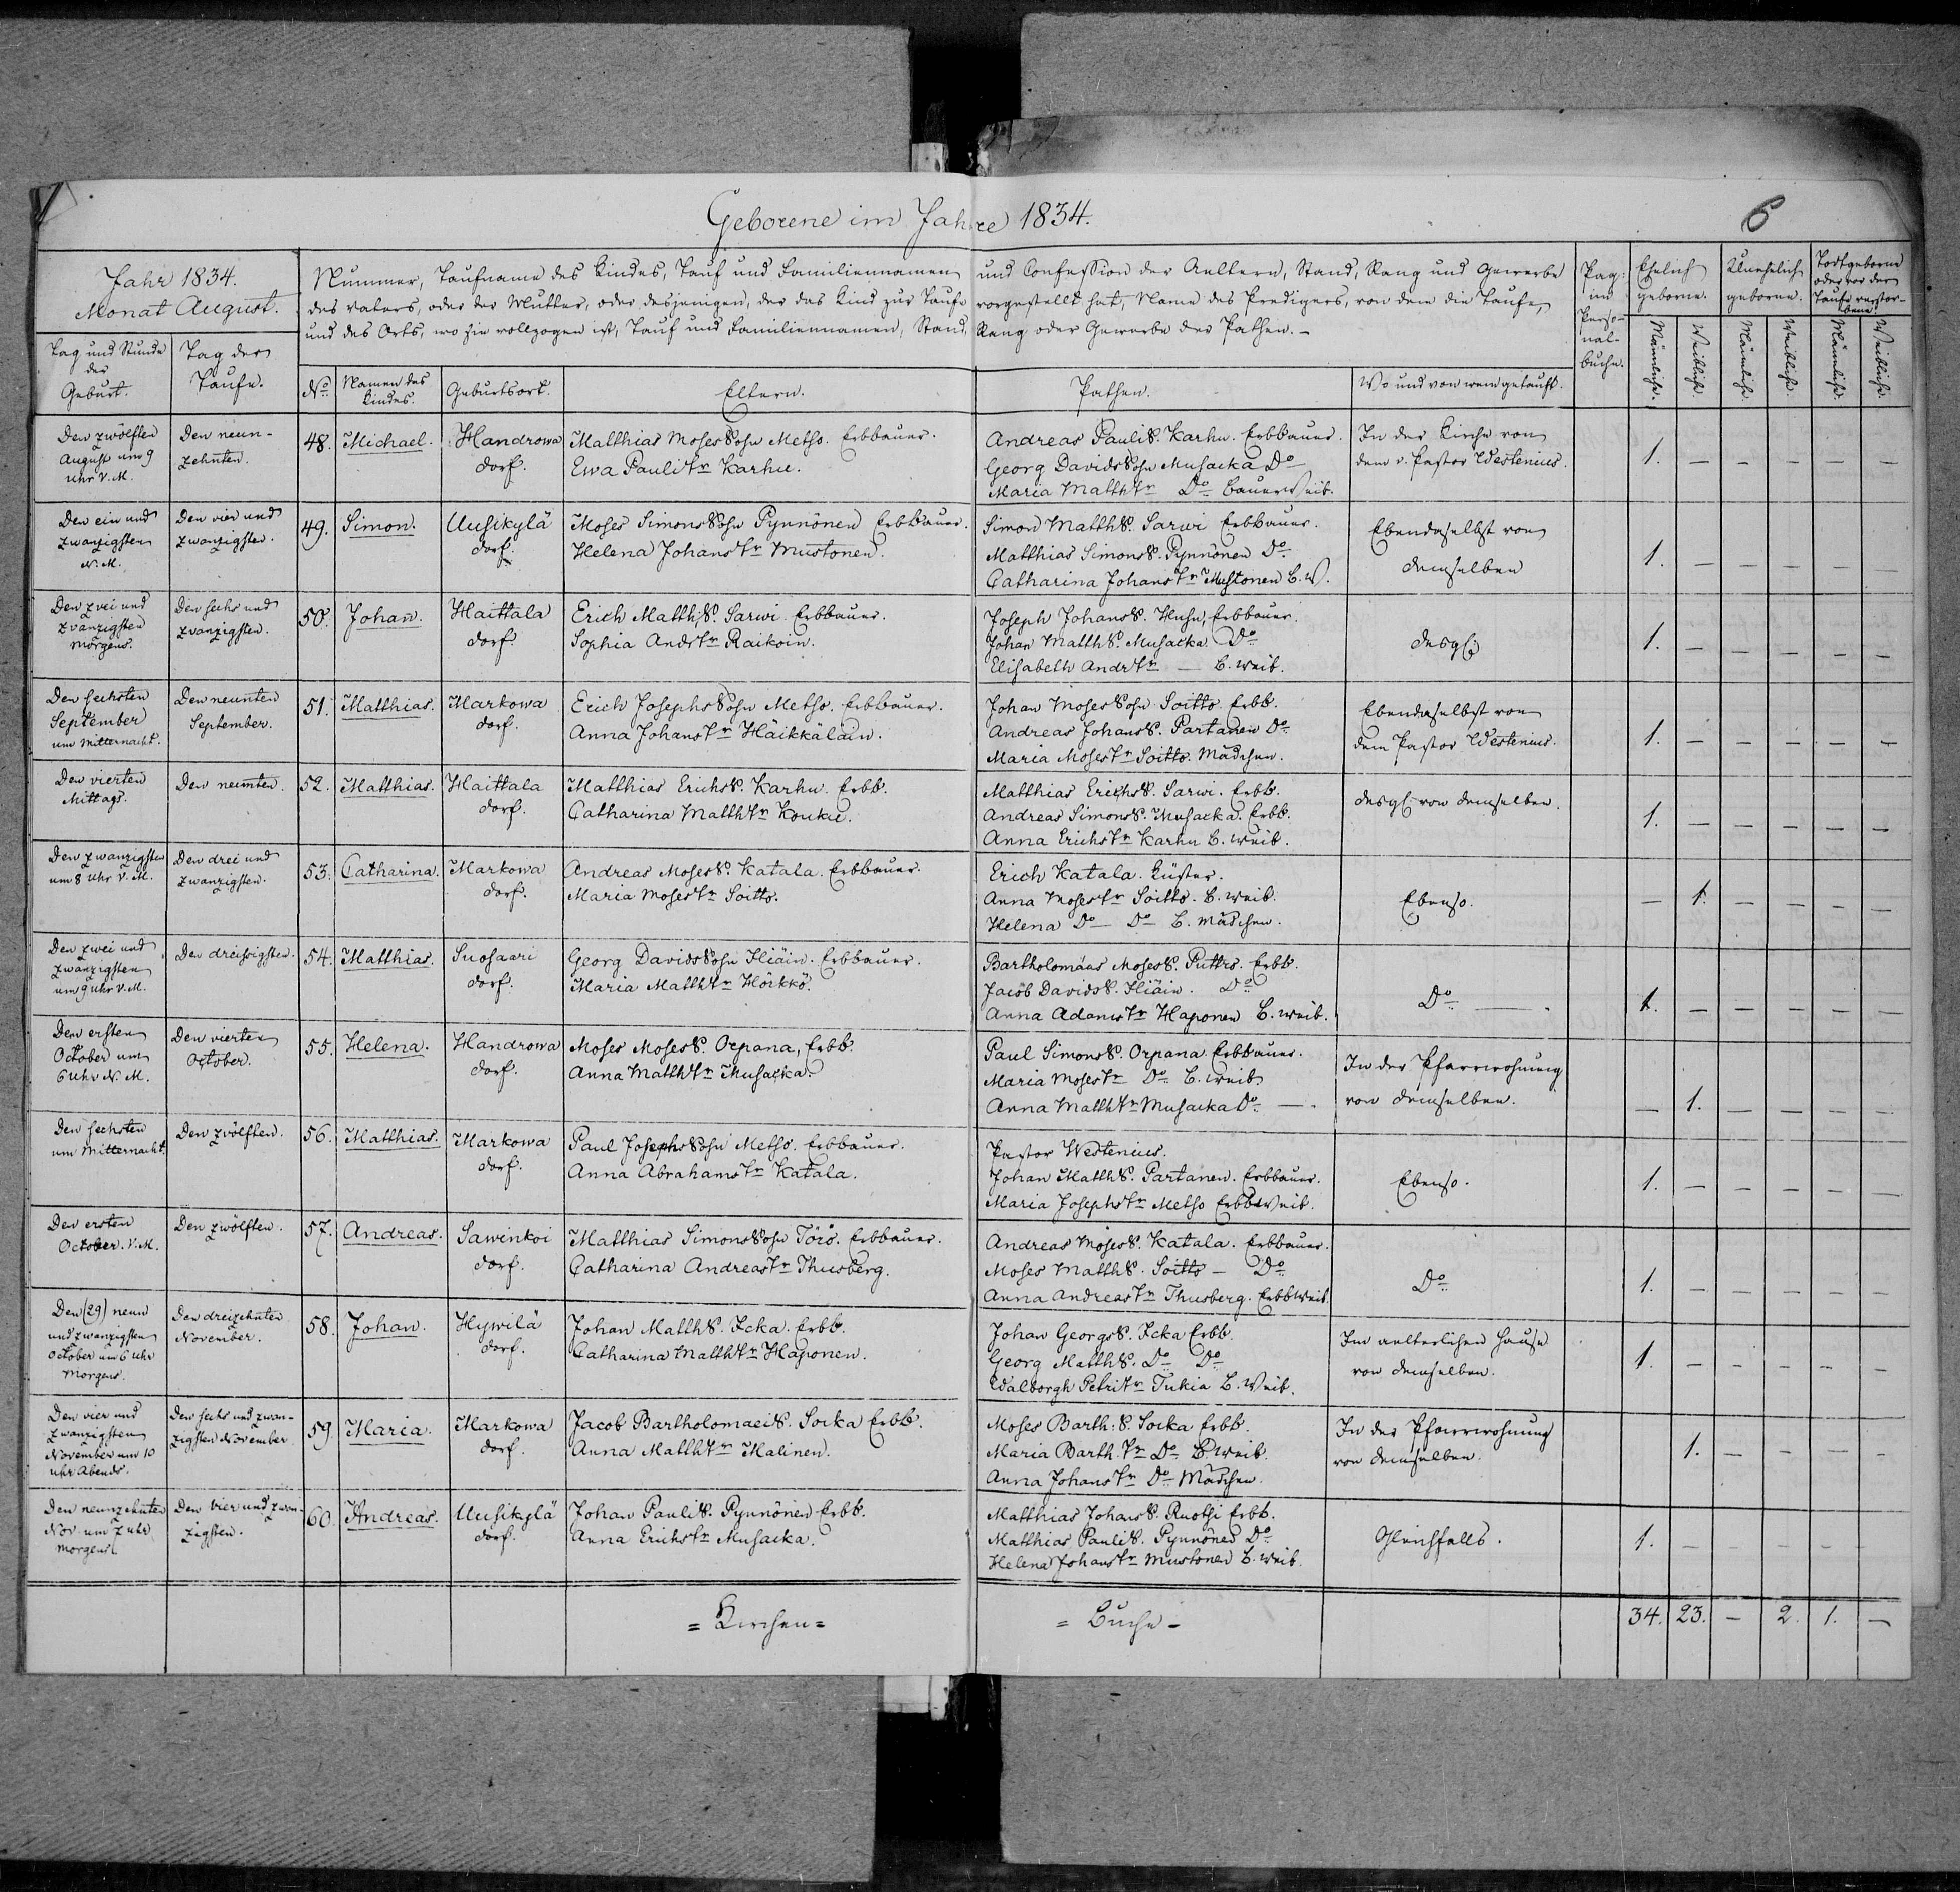 Geborene im Jahre 1834.
6
Jahr 1834.
Monat August.
Nummer, Taufname des Kindes, Tauf und Familiennamen und Confession der Aeltern, Stand, Rang und Gewerbe
des Vaters, oder der Mutter, oder desjenigen, der das Kind zur Taufe vorgestellt hat, Name des Predigers, von dem die Taufe,
und des Orts, wo sie vollzogen ist, Tauf und Familiennamen, Stand, Rang oder Gewerbe der Pathen.
Pag:
im
Perso-
nal-
buche.
Ehelich
geborne.
Unehelich
geborne.
Todtgeborne
oder vor der
Taufe verstor-
bene.
Männliche.
Weibliche.
Männliche.
Weibliche.
Männliche.
Weibliche.
Tag und Stunde
der
Geburt.
Tag der
Taufe.
No
Namen des
Kindes.
Geburtsort.
Eltern.
Pathen.
Wo und von wem getauft.
Den zwölften
August um 9
Uhr V. M.
Den neun-
zehnten.
48.
Michael.
Handrowa
dorf.
Matthias Moses Sohn Metso. Erbbauer.
Ewa Pauli Tr Karhu.
Andreas Pauli S. Karhu. Erbbauer.
Georg Davids Sohn Musacka Do
Maria Matth Tr Do Bauer Weib.
In der Kirche von
dem v. Pastor Westenius.
1. — — — — —
Den ein und
zwanzigsten
N. M.
Den vier und
zwanzigsten.
49.
Simon.
Uusikylä
dorf.
Moses Simons Sohn Pynnönen Erbbauer.
Helena Johans Tr Mustonen.
Simon Matth S. Sarwi Erbbauer.
Matthias Simons S. Pynnönen Do
Catharina Johans Tr Mustonen B. W.
Ebendaselbst von
demselben
1. — — — — —
Den zwei und
zwanzigsten
morgens.
Den sechs und
zwanzigsten.
50.
Johan̄.
Haittala
dorf.
Erich Matth S. Sarwi. Erbbauer.
Sophia Andr Tr Raikoin.
Joseph Johans S. Huhu, Erbbauer.
Johan Matth S. Musacka. Do
Elisabeth Andr Tr — B. Weib.
desgl.
1. — — — — —
Den sechsten
September
um Mitternacht.
Den neunten
September.
51.
Matthias.
Markowa
dorf.
Erich Josephs Sohn Metso. Erbbauer.
Anna Johans Tr Häikkäläin.
Johan Moses Sohn Soitto. Erbb.
Andreas Johans S. Partanen Do
Maria Moses Tr Soitto. Mädchen.
Ebendaselbst von
dem Pastor Westenius.
1. — — — — —
Den vierten
Mittags.
Den neunten.
52.
Matthias.
Haittala
dorf.
Matthias Erichs S. Karhu. Erbb.
Catharina Matth Tr Kouku.
Matthias Erichs S. Sarwi. Erbb.
Andreas Simons S. Musacka. Erbb.
Anna Erichs Tr Karhu B. Weib.
desgl. von demselben.
1. — — — — —
Den zwanzigsten
um 8 Uhr V. M.
Den drei und
zwanzigsten.
53.
Catharina.
Markowa
dorf.
Andreas Moses S. Katala. Erbbauer.
Maria Moses Tr Soitto.
Erich Katala. Küster.
Anna Moses Tr Soitto. B. Weib.
Helena Do — Do B. Mädchen.
Ebenso.
— 1. — — — —
Den zwei und
zwanzigsten
um 9 Uhr V. M.
Den dreissigsten.
54.
Matthias.
Suosaari
dorf.
Georg Davids Sohn Iliäin. Erbbauer.
Maria Matth Tr Hörkkö.
Bartholomäus Moses S. Puttro. Erbb.
Jacob Davids S. Iliäin. Do
Anna Adams Tr Haponen B. Weib.
Do —
1. — — — — —
Den ersten
October um
6 Uhr N. M.
Den vierten
October.
55.
Helena.
Handrowa
dorf.
Moses Moses S. Orpana, Erbb.
Anna Matth Tr Musacka.
Paul Simons S. Orpana Erbbauer.
Maria Moses Tr Do B. Weib
Anna Matth Tr Musacka Do —.
In der Pfarrwohnung
von demselben.
— 1. — — — —
Den sechsten
um Mitternacht.
Den zwölften.
56.
Matthias.
Markowa
dorf.
Paul Josephs Sohn Metso. Erbbauer.
Anna Abrahams Tr Katala.
Pastor Westenius.
Johan Matth S. Partanen. Erbbauer.
Maria Josephs Tr Metso Erbb Weib.
Ebenso.
1. — — — — —
Den ersten
October. V. M.
Den zwölften.
57.
Andreas.
Sawinkoi
dorf.
Matthias Simons Sohn Törö. Erbbauer.
Catharina Andreas Tr Thusberg.
Andreas Moses S. Katala. Erbbauer.
Moses Matth S. Soitto — Do
Anna Andreas Tr Thusberg. Erbb Weib.
Do
1. — — — — —
Den (29) neun
und zwanzigsten
October um 6 Uhr
Morgens.
Den dreizehnten
November.
58.
Johan.
Hywilä
dorf.
Johan Matth S. Icka. Erbb.
Catharina Matth Tr Haponen.
Johan Georgs S. Icka Erbb.
Georg Matth S. Do Do
Walborgh Petri Tr Tukia B. Weib.
Im aelterlichen Hause
von demselben.
1. — — — — —
Den vier und
zwanzigsten
November um 10
Uhr Abends.
Den sechs und zwan-
zigsten November
59.
Maria.
Markowa
dorf.
Jacob Bartholomaei S. Sorka Erbb.
Anna Matth Tr Malinen.
Moses Barth: S. Sorka Erbb.
Maria Barth. Tr Do B. Weib.
Anna Johans Tr Do Mädchen.
In der Pfarrwohnung
von demselben.
1. — — — —
Den neunzehnten
Nov. um 7 Uhr
Morgens.
Den vier und zwan-
zigsten.
60.
Andreas.
Uusikylä
dorf.
Johan Pauli S. Pynnönen Erbb.
Anna Erichs Tr Musacka.
Matthias Johans S. Ruotsi Erbb.
Matthias Pauli S. Pynnönen Do
Helena Johans Tr Mustonen B. Weib.
Gleichfalls.
1. — — — — —
= Kirchen =
= Buche —
34. 23. — 2. 1. —